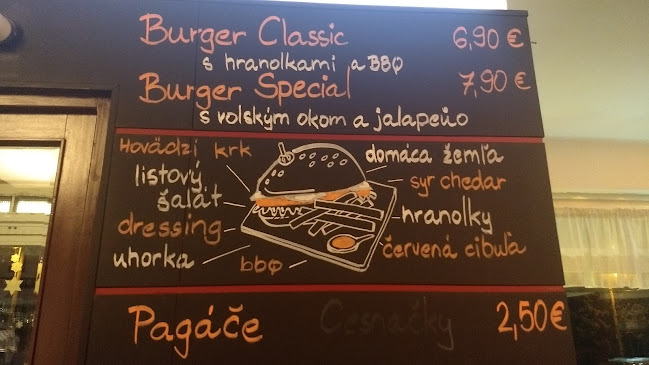 Burger Classic 6,90 €
s hranolkami a BBQ
Burger Special 7,90 €
s volským okom a jalapeño
Hovädzí krk
domáca žemľa
listový
šalát
syr chedar
dressing
hranolky
uhorka
bbq
červená cibuľa
Pagáče Cesnačky 2,50 €